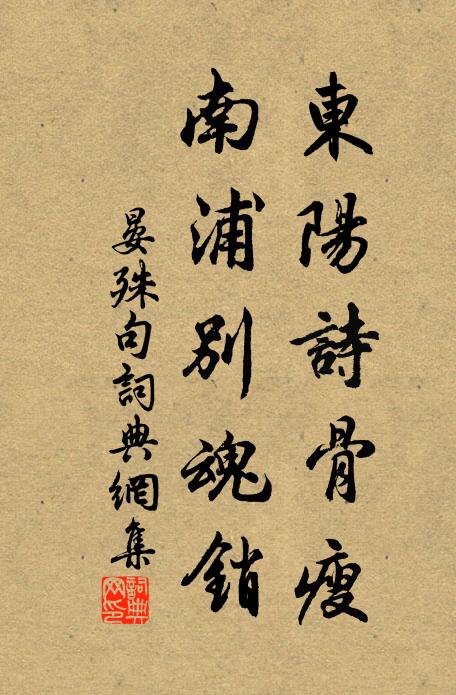 東陽詩骨瘦
南浦別魂銷
晏殊句詞典網集
詞典网印